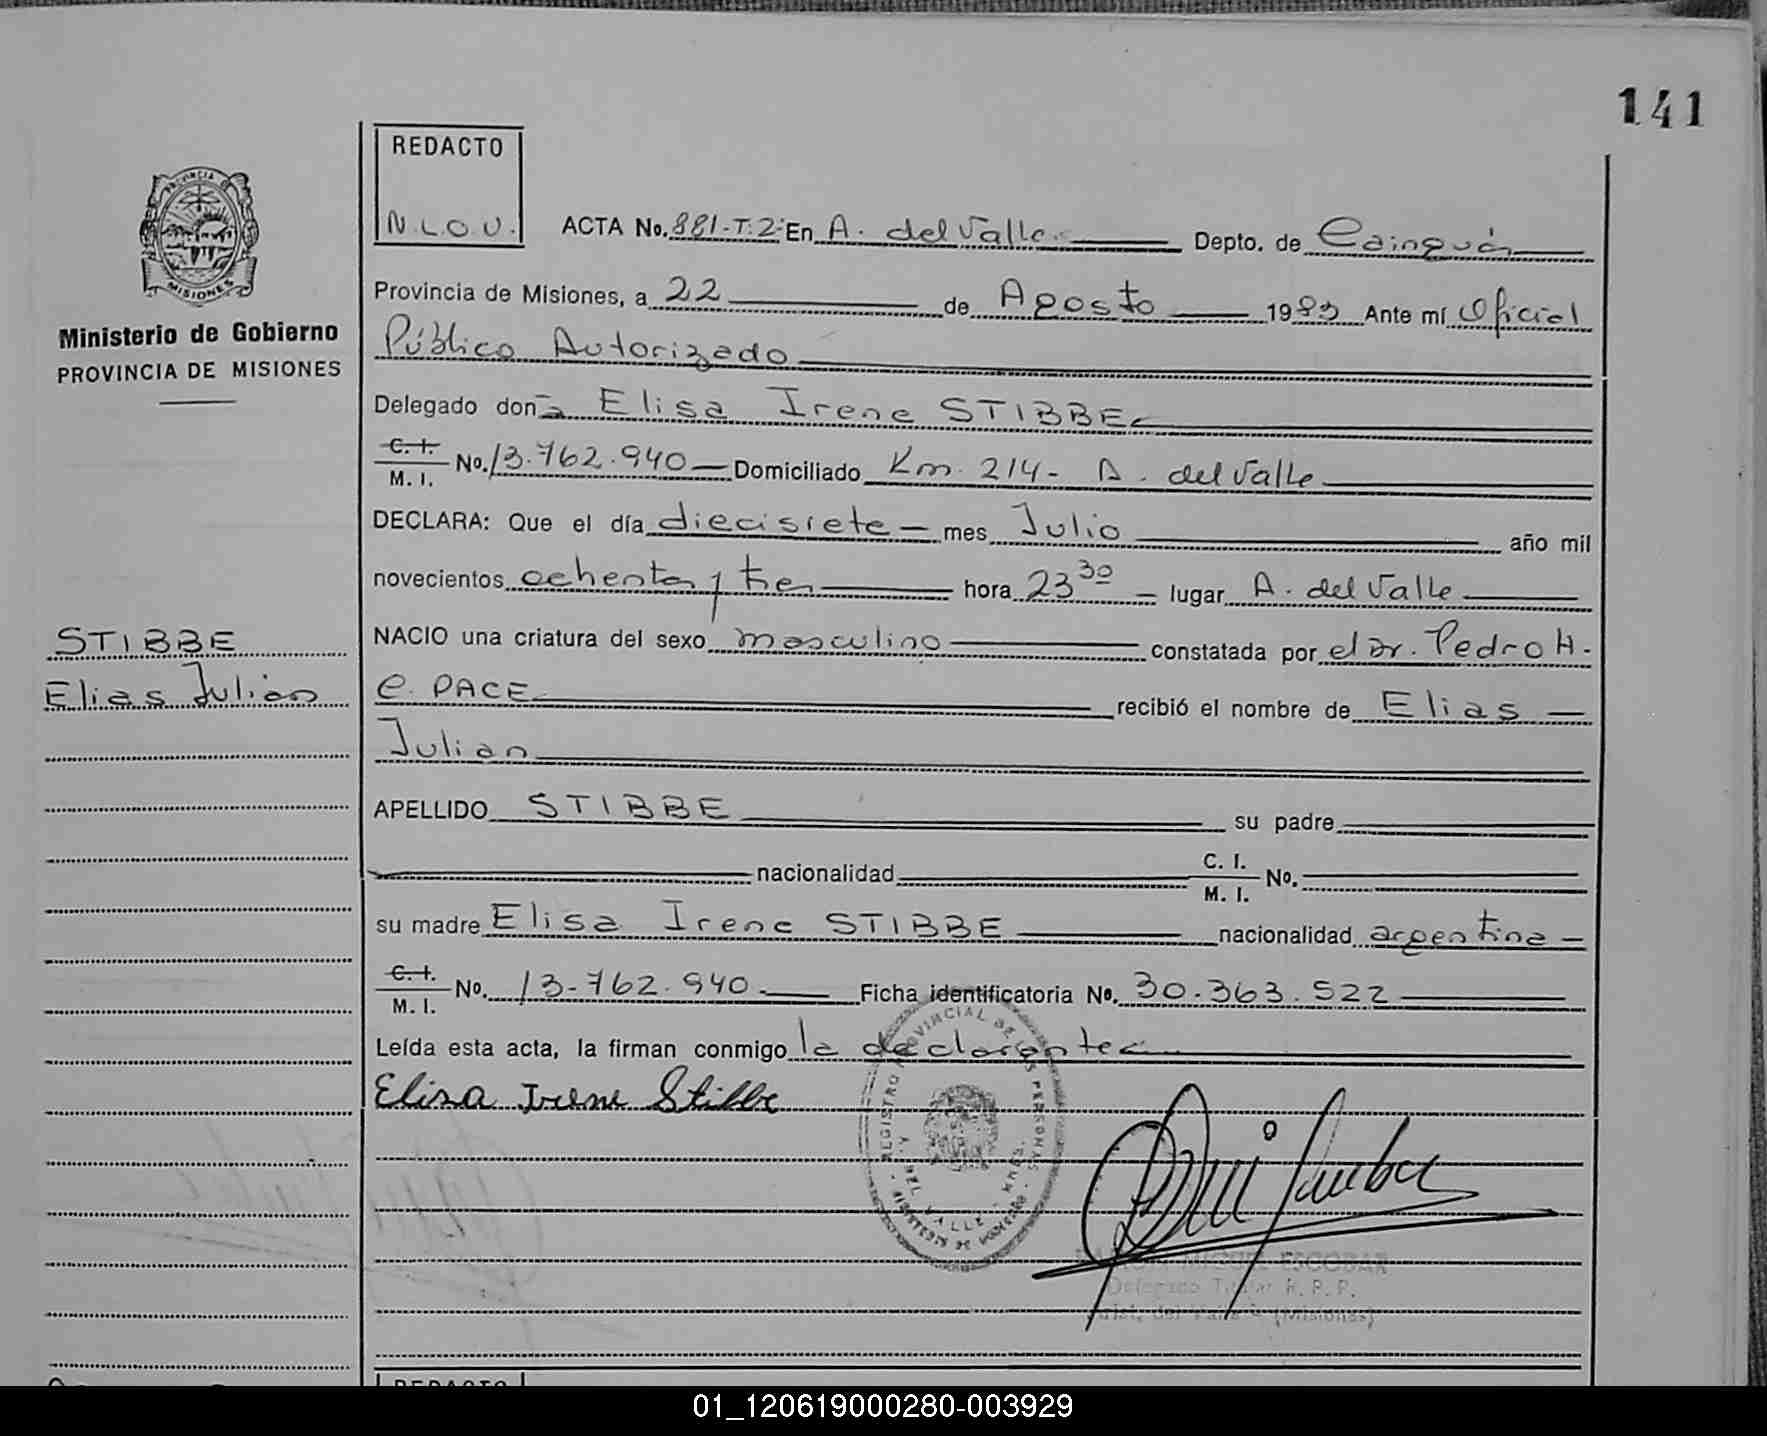 141
REDACTO
N.L.O.V.
ACTA No. 881-T:2- En A. del Valle. Depto. de Cainguás
Provincia de Misiones, a 22 de Agosto 1983 Ante mí Oficial
Público Autorizado
Delegado don a Elisa Irene STIBBE
C. I.
M. I. No. 13.762.940 Domiciliado Km. 214 - A. del Valle
DECLARA: Que el día diecisiete mes Julio año mil
novecientos ochenta y tres hora 23 30 lugar A. del Valle
NACIO una criatura del sexo masculino constatada por el Dr. Pedro H.
C. PACE recibió el nombre de Elias
Julian
APELLIDO STIBBE su padre
nacionalidad C. I.
M. I. No.
su madre Elisa Irene STIBBE nacionalidad argentina
C. I.
M. I. No. 13.762.940. Ficha identificatoria No. 30.363.522
Leída esta acta, la firman conmigo la declarante
Elisa Irene Stibbe
PROVINCIA DE MISIONES
Ministerio de Gobierno
PROVINCIA DE MISIONES
STIBBE
Elias Julian
REGISTRO PROVINCIAL DE LAS PERSONAS
MINISTERIO DE GOBIERNO
DEL VALLE - MNES.
MIGUEL ESCOBAR
Delegado Titular R. P. P.
Arist. del Valle (Misiones)
REDACTO
01_120619000280-003929